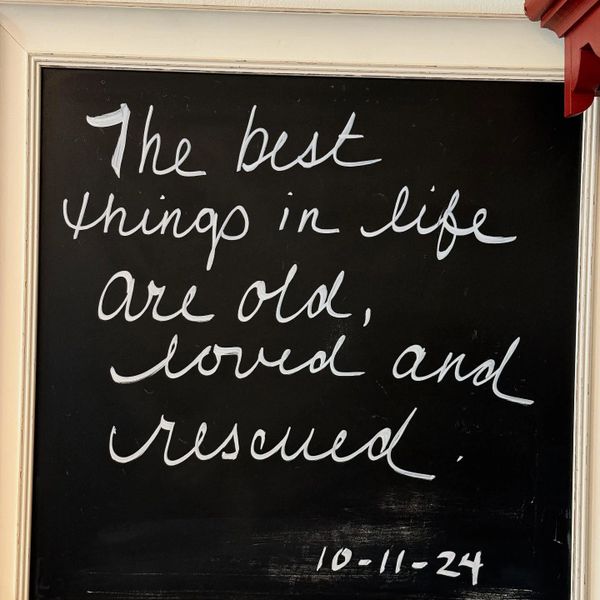 The best
things in life
are old,
loved and
rescued.
10-11-24